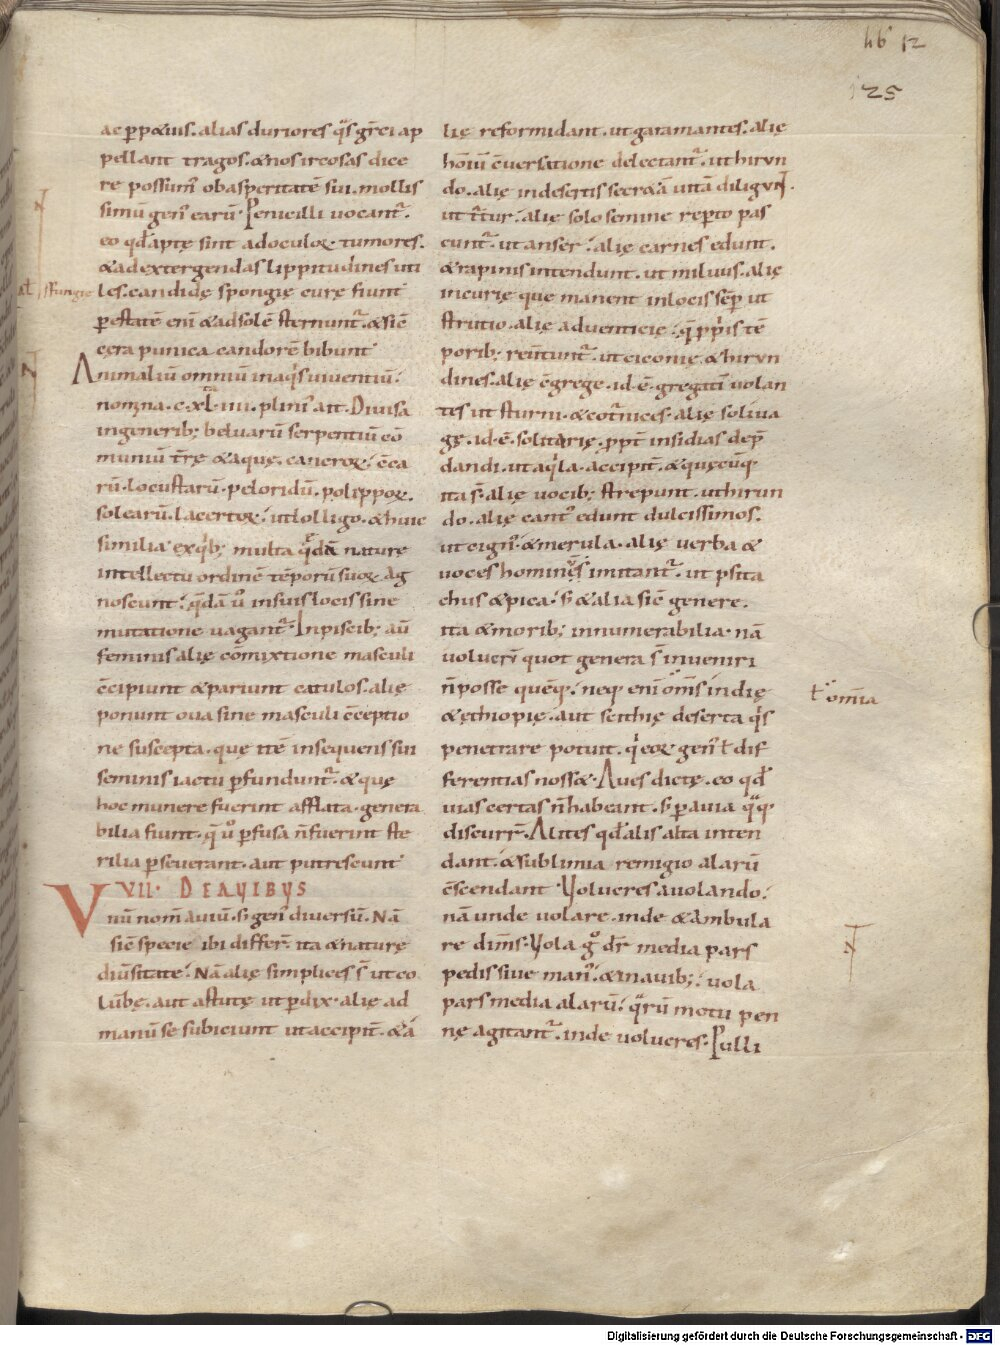 lib 12
125
ac ꝑpetuis. alias duriores q̊s greci ap
pellant tragos. & nos ircosas dice
re possum᾽ ob asperitatē sui. mollis
simū gen᾽ earū. Penicilli uocant᾽.
eo qđ aptę sint ad oculoꝝ tumores.
& ad extergendas lippitudines uti
les. candidę spongię curę fiunt
ꝑ ęstatē eni᾽ & ad solē sternunt᾽. & sic̄
cera punica candorē bibunt
Animaliū omniū in aq̇s uiuentiū.
nomina .c.xl.iiii. plini᾽ ait. Diuisa
in generib; beluarū serpentiū cō
muniū tr̄ę & aquę. cancroꝝ. c̄ca
rū. locustarū. peloridū. polippoꝝ.
solearū. lacertoꝝ. ut lolligo. & huic
similia. ex q̇b; multa q̇dā naturę
intellectu ordinē tēporū suoꝝ ag
noscunt. q̄dā u᾽o in suis locis sine
mutatione uagant᾽. In piscib; aū
feminis alię cōmixtione masculi
c̄cipiunt & pariunt catulos. alię
ponunt oua sine masculi c̄ceptio
ne suscepta. que itē insequens sui
seminis iactu ꝑfundunt᾽. & quę
hoc munere fuerint afflata. genera
bilia fiunt. q̄ u᾽o ꝑfusa n̄ fuerint ste
rilia ꝑseuerant. aut putrescunt
VII. DE AVIBVS
Vnū nom̄ auiū. sꝫ gen᾽ diuersū. Nā
sic̄ specie ibi differ̄. ita & naturę
diu᾽sitate. Nā alię simplices s̄ ut co
lu̅bę. aut astutę ut ꝑdix. alię ad
manū se subiciunt ut accipit᾽. & a
lię reformidant. ut garamantes. alię
hōiū c̄uersatione delectant᾽. ut hirun
do. alię in desertis secr&ā uitā diligunt.
ut t᾽tur. alię solo semine reꝑto pas
cunt᾽. ut anser. alię carnes edunt.
& rapinis intendunt. ut miluus. alię
incurię que manent in locis sēꝑ ut
strutio. alię aduenticię. q̄ ꝓp̄is tē
porib; reu᾽tunt᾽. ut ciconię. & hirun
dines. alię c̄grege .id.ē. gregati᾽ uolan
tes ut sturni. & cot᾽nices. alię soliua
gę .id.ē. solitarię. ꝓpt᾽ insidias dep̄
dandi. ut aq̇la. accipit᾽. & quęcūq;
ita s̄. alię uocib; strepunt. ut hirun
do. alię cant᾽ edunt dulcissimos.
ut cign᾽. & merula. alię uerba &
uoces hominēs imitant᾽. ut psita
chus & pica. sꝫ & alia sic̄ genere.
ita & morib; innumerabilia. nā
uolucrū quot genera s̄ inueniri
n̄ posse quēq;. neq; eni᾽ om̄s indię
& ęthiopię. aut scithię deserta q̇s
penetrare potuit. q̇ eoꝝ gen᾽ ł dif
ferentias nossæ. Aues dictę. eo qđ
uias certas n̄ habeant. sꝫ ꝑ auia q̄q;
discurr̄. Alites qđ alis alta inten
dant. & sublimia remigio alarū
c̄scendant. Volucres a uolando.
nā unde uolare. inde & ambula
re dim̄s. Vola g̊ dr̄ media pars
pedis siue man᾽. & in auib; uola
pars media alarū. q̄rū motu pen
nę agitant᾽. inde uolucres. Pulli
ł spungię
ł omnia